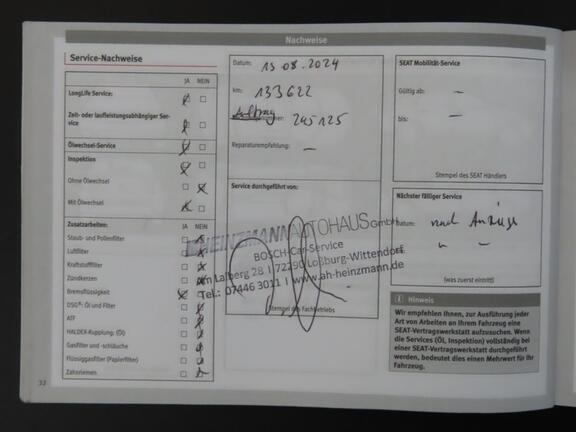 Nachweise
Service-Nachweise
JA NEIN
LongLife Service:
Zeit- oder laufleistungsabhängiger Ser-
vice
Ölwechsel-Service
Inspektion
Ohne Ölwechsel
Mit Ölwechsel
Zusatzarbeiten: JA NEIN
Staub- und Pollenfilter
Luftfilter
Kraftstofffilter
Zündkerzen
Bremsflüssigkeit
DSG®: Öl und Filter
ATF
HALDEX-Kupplung: (Öl)
Gasfilter und -schläuche
Flüssiggasfilter (Papierfilter)
Zahnriemen
32
Datum: 13.08.2024
km: 133622
Auftrag 245125
Reparaturempfehlung: –
Service durchgeführt von:
HEINZMANN AUTOHAUS GmbH
BOSCH-Car-Service
72290 Loßburg-Wittendorf
Tel.: 07446 3011 I www.ah-heinzmann.de
Stempel des Fachbetriebs
SEAT Mobilität-Service
Gültig ab: –
bis: –
Stempel des SEAT Händlers
Nächster fälliger Service
Datum: nach Anzeige
(was zuerst eintritt)
i Hinweis
Wir empfehlen Ihnen, zur Ausführung jeder
Art von Arbeiten an Ihrem Fahrzeug eine
SEAT-Vertragswerkstatt aufzusuchen. Wenn
die Services (Öl, Inspektion) vollständig bei
einer SEAT-Vertragswerkstatt durchgeführt
werden, bedeutet dies einen Mehrwert für Ihr
Fahrzeug.